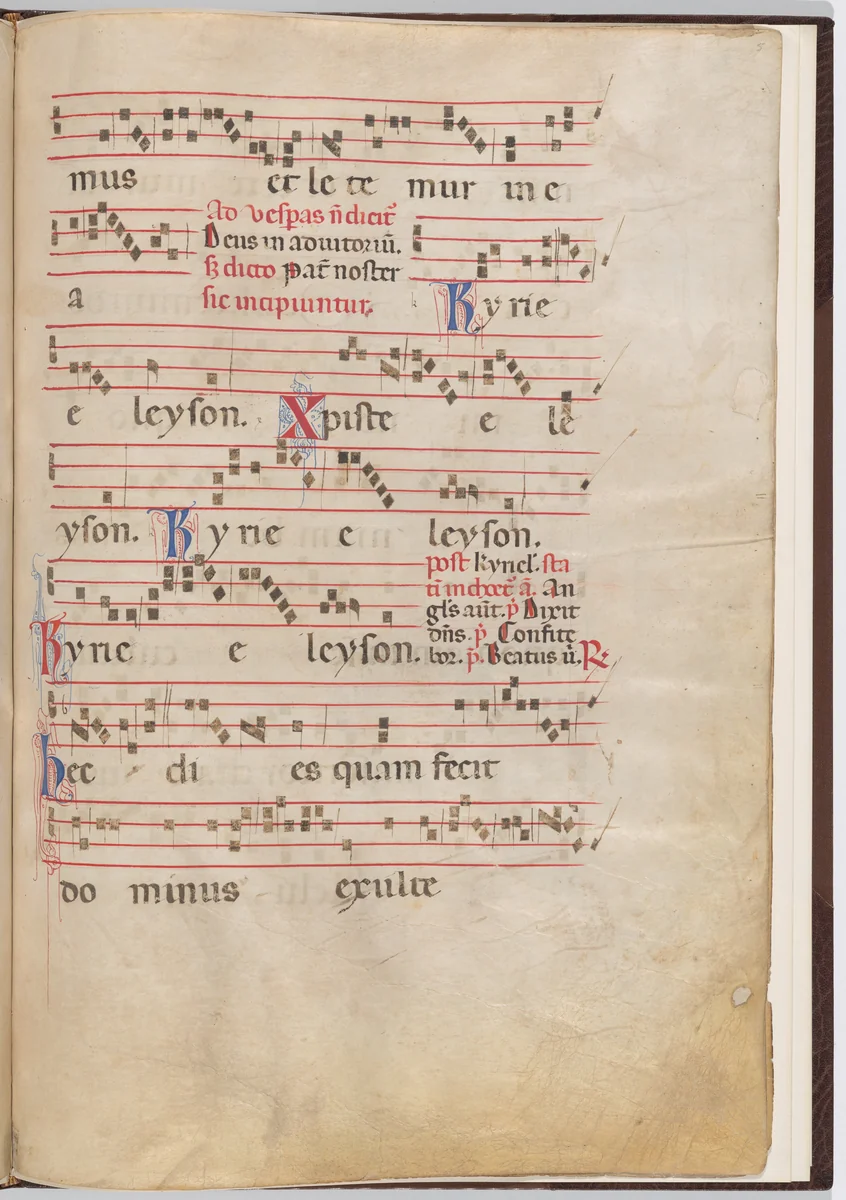 mus et le te mur in e
Ad vesp̄as n̄ dicit᷑
Deus in adiutoriū.
s̄ dicto pat̄ noster
a sic incipiuntur. Kyrie
e leyson. Xpiste e le
yson. Kyrie e leyson.
post kyriel̄. sta
tī in choet᷑ a᷑. An
gl̄s aūt. p̄ Dixit
dn̄s. p̄ Confite
Kyrie e leyson. bor. p̄. Beatus ū. R
hec di es quam fecit
do minus exulte